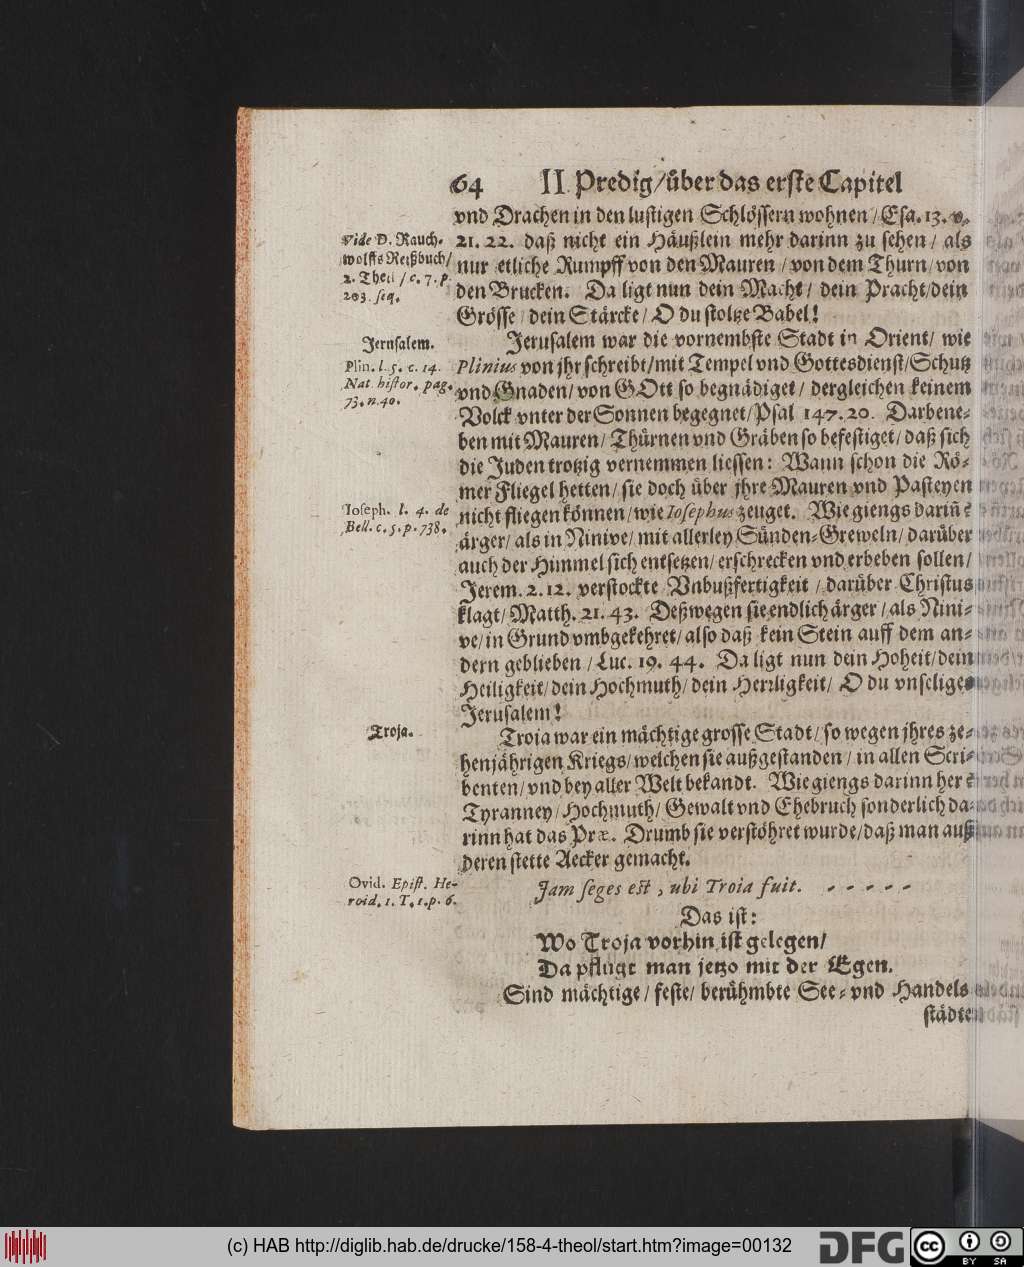 64 II. Predig/über das erste Capitel
vnd Drachen in den lustigen Schlössern wohnen/Esa. 13. v.
21. 22. daß nicht ein Häußlein mehr darinn zu sehen/ als
nur etliche Rumpff von den Mauren/von dem Thurn/von
den Brucken. Da ligt nun dein Macht/ dein Pracht/dein
Grösse/dein Stärcke/O du stoltze Babel!
Vide D. Rauch-
wolffs Reißbuch/
2. Theil/c. 7. p.
203. seq.
Jerusalem war die vornembste Stadt in Orient/ wie
Plinius von jhr schreibt/mit Tempel vnd Gottesdienst/Schutz
vnd Gnaden/von GOtt so begnädiget/ dergleichen keinem
Volck vnter der Sonnen begegnet/Psal 147. 20. Darbene-
ben mit Mauren/Thürnen vnd Gräben so befestiget/daß sich
die Juden trotzig vernemmen liessen: Wann schon die Rö-
mer Fliegel hetten/sie doch über jhre Mauren vnd Pasteyen
nicht fliegen können/wie Iosephus zeuget. Wie giengs dariñ?
ärger/als in Ninive/mit allerley Sünden-Greweln/darüber
auch der Himmel sich entsetzen/erschrecken vnd erbeben sollen/
Jerem. 2. 12. verstockte Vnbußfertigkeit/darüber Christus
klagt/Matth. 21. 43. Deßwegen sie endlich ärger/als Nini-
ve/in Grund vmbgekehret/also daß kein Stein auff dem an-
dern geblieben/Luc. 19. 44. Da ligt nun dein Hoheit/dein
Heiligkeit/dein Hochmuth/dein Herrligkeit/ O du vnseliges
Jerusalem!
Jerusalem.
Plin. l. 5. c. 14.
Nat. histor. pag.
73. n. 40.
Ioseph. l. 4. de
Bell. c. 5. p. 738.
Troja war ein mächtige grosse Stadt/so wegen jhres ze-
henjährigen Kriegs/welchen sie außgestanden/in allen Scri-
benten/vnd bey aller Welt bekandt. Wie giengs darinn her?
Tyranney/Hochmuth/Gewalt vnd Ehebruch sonderlich da-
rinn hat das Præ. Drumb sie verstöhret wurde/daß man auß
deren stette Aecker gemacht.
Troja.
Jam seges est, ubi Troia fuit. - - - - -
Ovid. Epist. He-
roid. 1. T. 1. p. 6.
Das ist:
Wo Troja vorhin ist gelegen/
Da pflügt man jetzo mit der Egen.
Sind mächtige/feste/berühmbte See- vnd Handels
städte
(c) HAB http://diglib.hab.de/drucke/158-4-theol/start.htm?image=00132
DFG
cc
BY SA